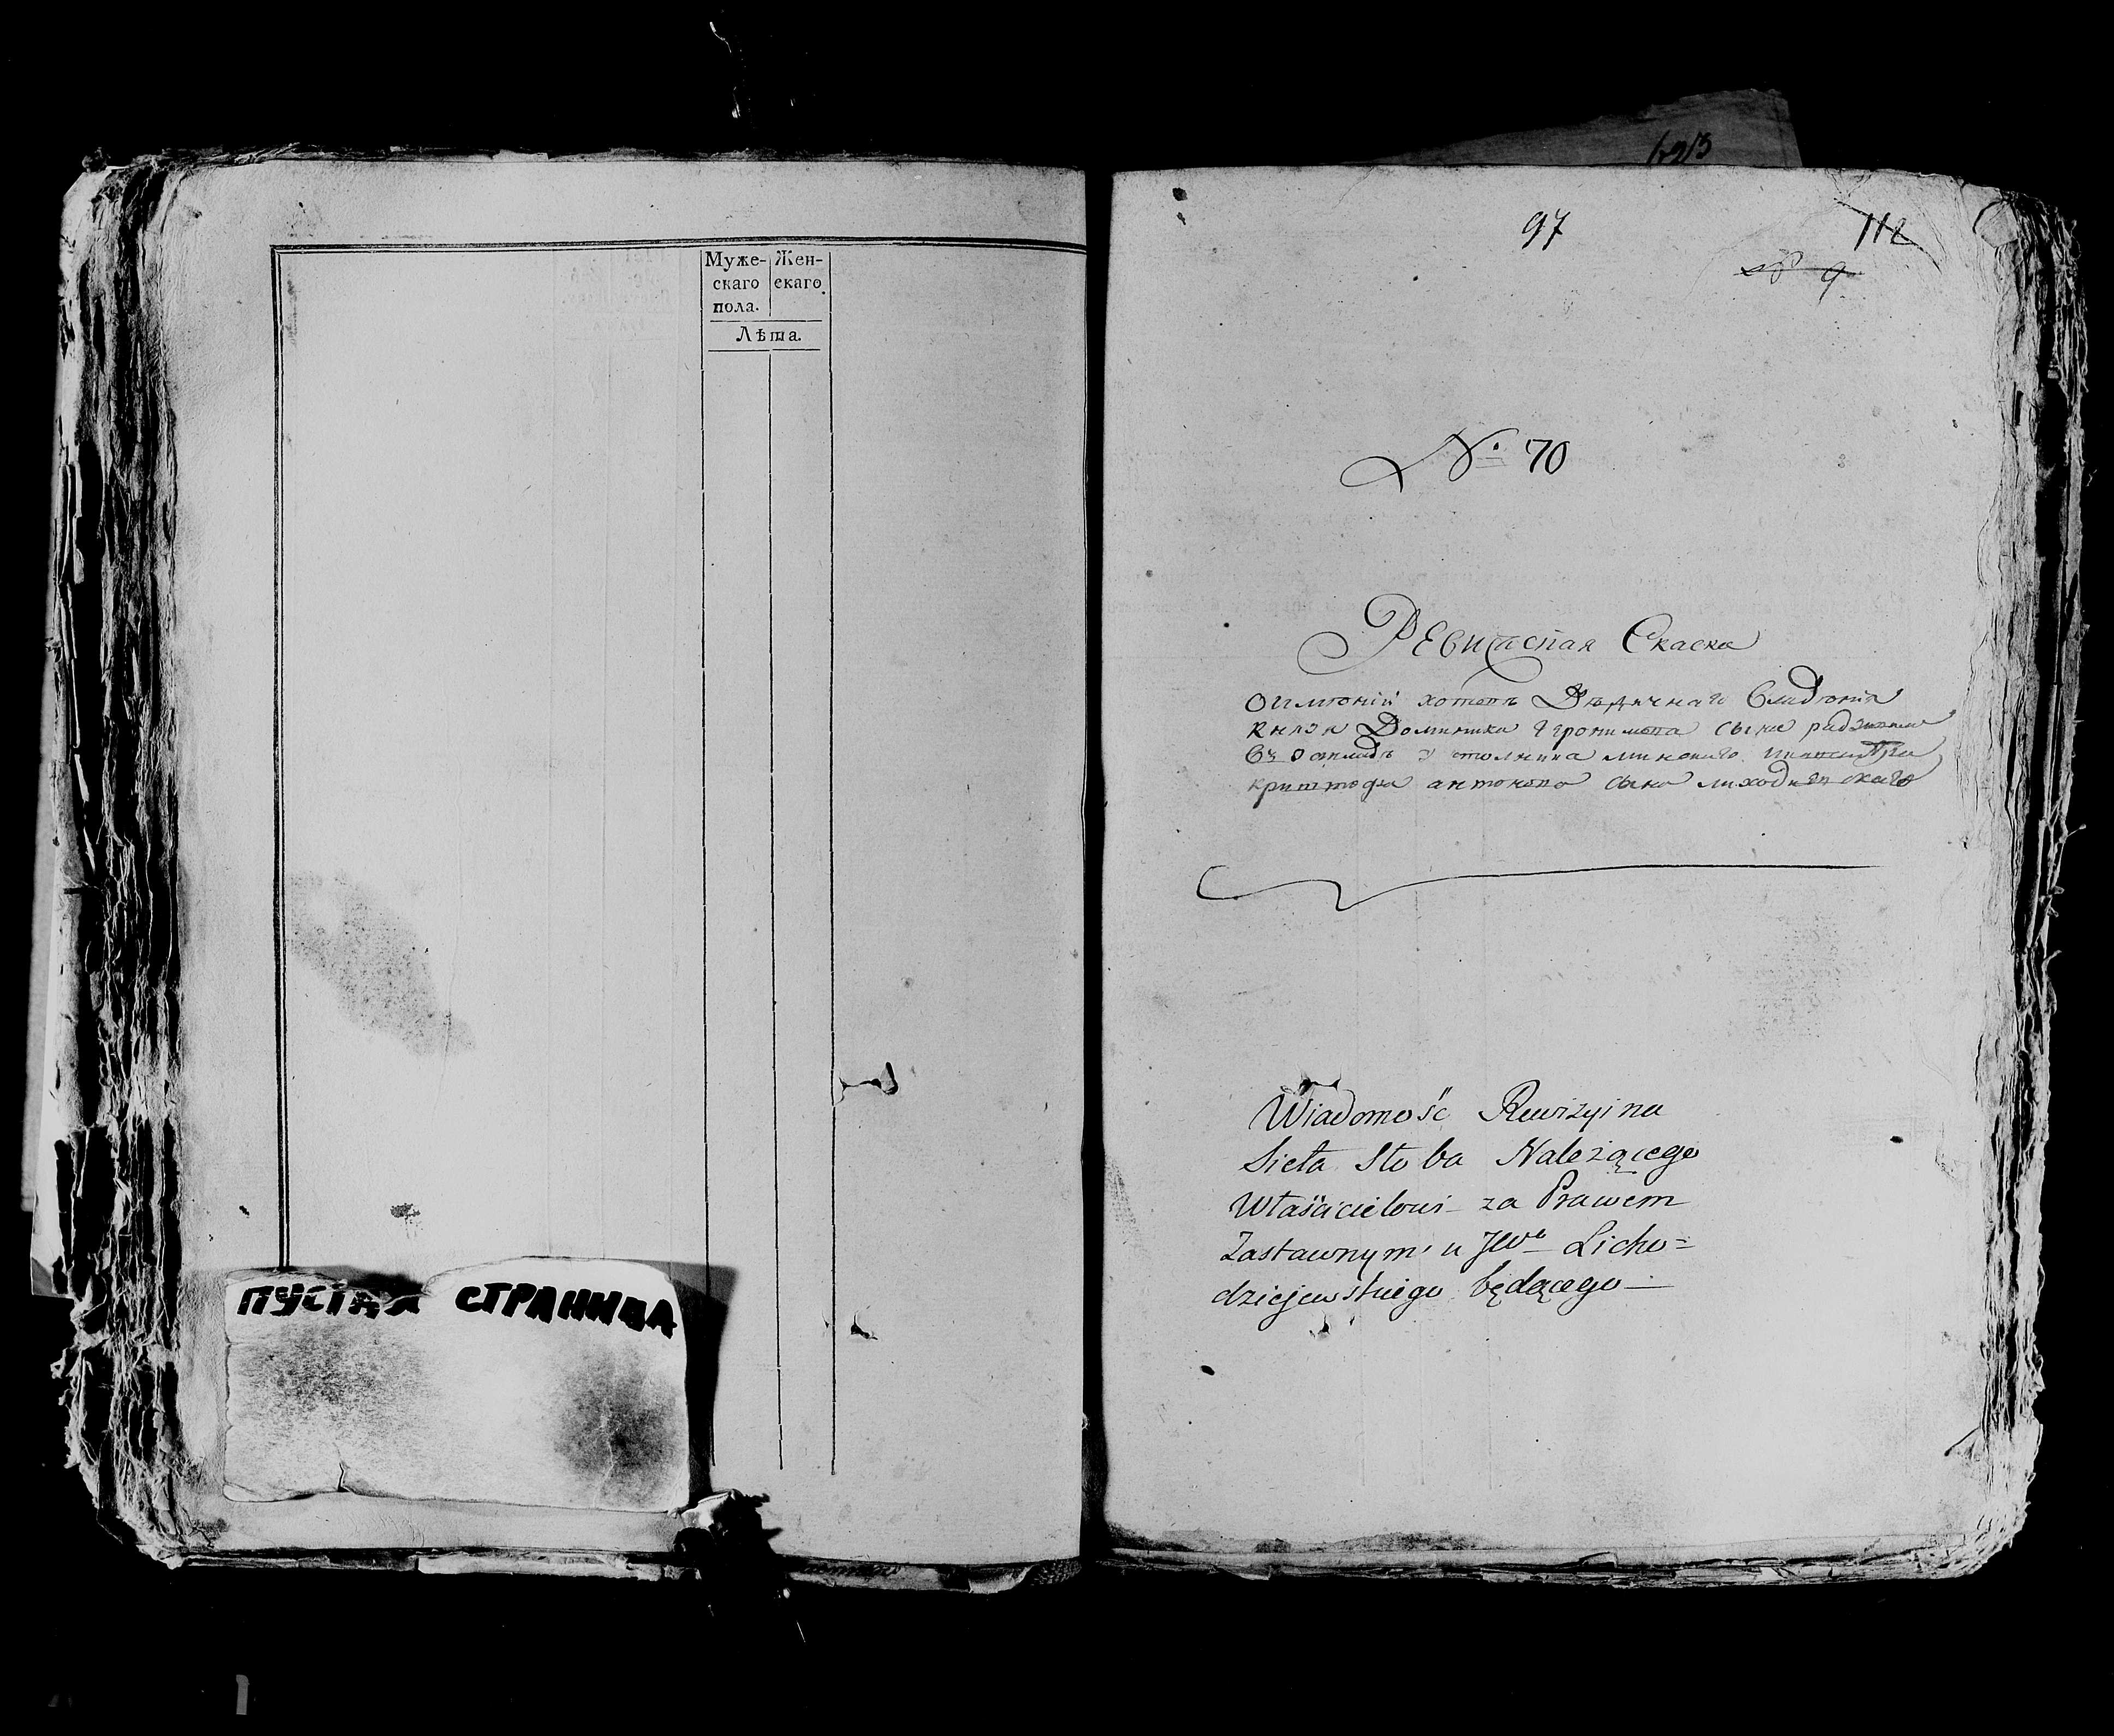 Муже-
скаго
пола.
Жен-
скаго
Лѣта.
ПУСТАЯ СТРАНИЦА
97
112
№ 9
№ 70
Ревиская Скаска
Дедичнаго
князя Доминика Геронимова сына
в столника минскаго
криштофа антонова сына
Wiadomość Rewizyina
Sieła Stoba Należącego
Właścicielowi za Prawem
Zastawnym u JWo Licho=
dziejewskiego będącego —